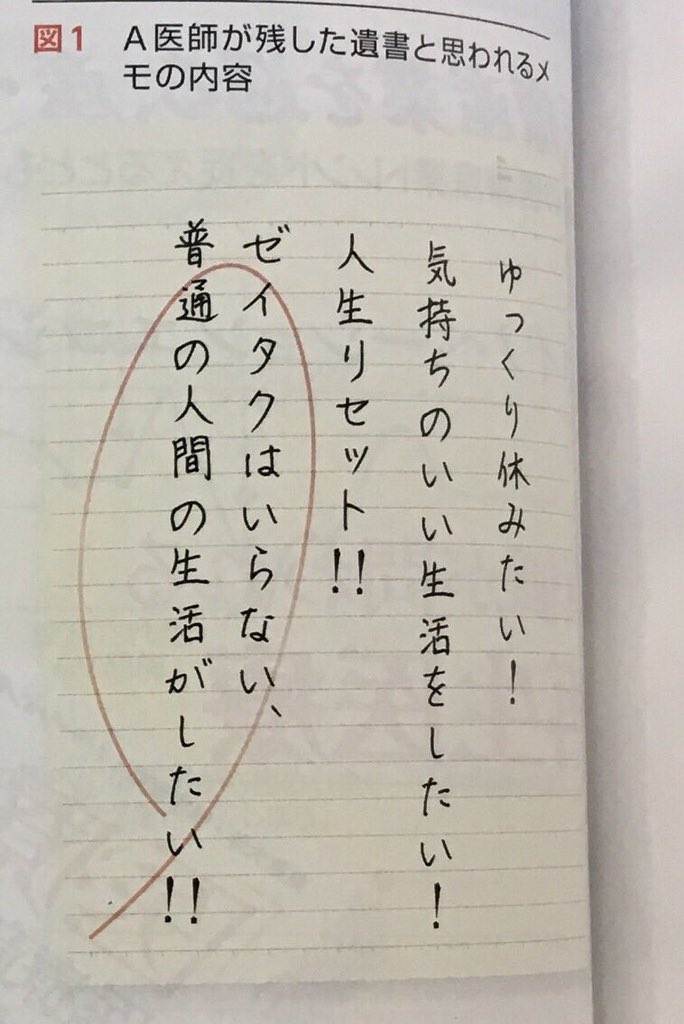 図1 A医師が残した遺書と思われるメ
モの内容
ゆっくり休みたい！
気持ちのいい生活をしたい！
人生リセット！！
ゼイタクはいらない、
普通の人間の生活がしたい！！